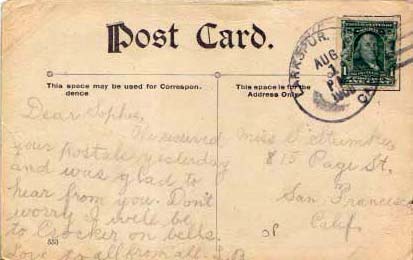 Post Card.
LARKSPUR.
AUG
CAL
This space may be used for Correspondence
This space is for the
Address Only
Dear Sophie,
We received
your postals yesterday
and was glad to
hear from you. Don't
worry I will be
to Crocker on bells.
Love to all from all.
Miss S.
815 Page St.
San Francisco
Calif.
533